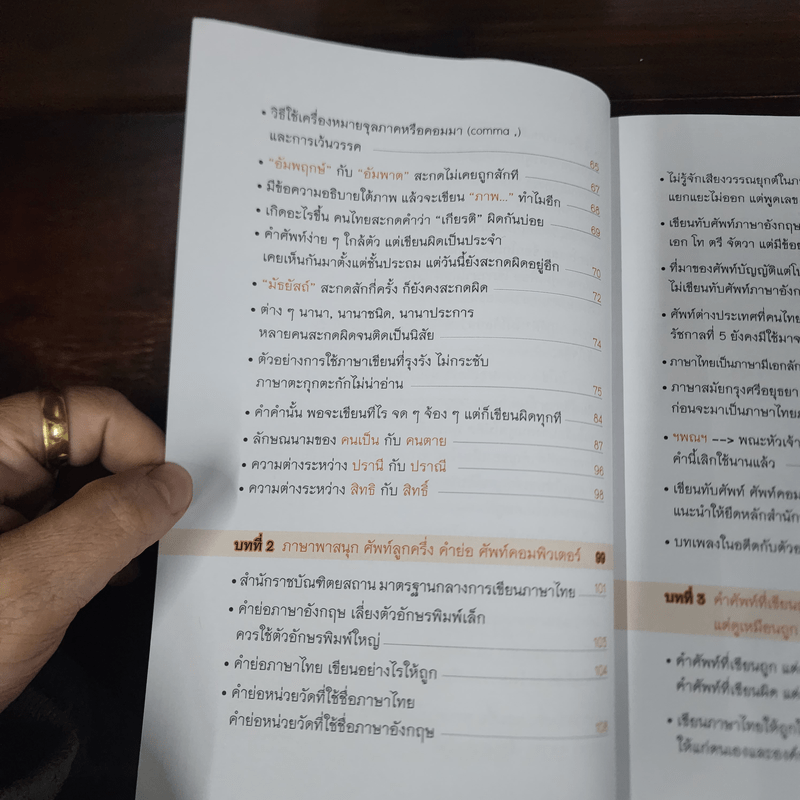 • วิธีใช้เครื่องหมายจุลภาคหรือคอมมา (comma ,)
และการเว้นวรรค 65
• "อัมพฤกษ์" กับ "อัมพาต" สะกดไม่เคยถูกสักที 67
• มีข้อความอธิบายใต้ภาพ แล้วจะเขียน "ภาพ..." ทำไมอีก 68
• เกิดอะไรขึ้น คนไทยสะกดคำว่า "เกียรติ" ผิดกันบ่อย 69
• คำศัพท์ง่าย ๆ ใกล้ตัว แต่เขียนผิดเป็นประจำ
เคยเห็นกันมาตั้งแต่ชั้นประถม แต่วันนี้ยังสะกดผิดอยู่อีก 70
• "มัธยัสถ์" สะกดสักกี่ครั้ง ก็ยังคงสะกดผิด 72
• ต่าง ๆ นานา, นานาชนิด, นานาประการ
หลายคนสะกดผิดจนติดเป็นนิสัย 74
• ตัวอย่างการใช้ภาษาเขียนที่รุงรัง ไม่กระชับ
ภาษาตะกุกตะกักไม่น่าอ่าน 75
• คำคำนั้น พอจะเขียนทีไร จด ๆ จ้อง ๆ แต่ก็เขียนผิดทุกที 84
• ลักษณนามของ คนเป็น กับ คนตาย 87
• ความต่างระหว่าง ปรานี กับ ปราณี 96
• ความต่างระหว่าง สิทธิ กับ สิทธิ์ 98
บทที่ 2 ภาษาพาสนุก ศัพท์ลูกครึ่ง คำย่อ ศัพท์คอมพิวเตอร์ 99
• สำนักราชบัณฑิตยสถาน มาตรฐานกลางการเขียนภาษาไทย 101
• คำย่อภาษาอังกฤษ เลี่ยงตัวอักษรพิมพ์เล็ก
ควรใช้ตัวอักษรพิมพ์ใหญ่ 103
• คำย่อภาษาไทย เขียนอย่างไรให้ถูก 104
• คำย่อหน่วยวัดที่ใช้ชื่อภาษาไทย
คำย่อหน่วยวัดที่ใช้ชื่อภาษาอังกฤษ
• ไม่รู้จักเสียงวรรณยุกต์ใน
แยกแยะไม่ออก แต่พูดเลข
• เขียนทับศัพท์ภาษาอังกฤษ
เอก โท ตรี จัตวา แต่มีข้อ
• ที่มาของศัพท์บัญญัติแต่
ไม่เขียนทับศัพท์ภาษาอังก
• ศัพท์ต่างประเทศที่คนไทย
รัชกาลที่ 5 ยังคงมีใช้มา
• ภาษาไทยเป็นภาษามีเอกลัก
• ภาษาสมัยกรุงศรีอยุธยา
ก่อนจะมาเป็นภาษาไทย
• ฯพณฯ --> พณะหัวเจ้า
คำนี้เลิกใช้นานแล้ว
• เขียนทับศัพท์ ศัพท์คอม
แนะนำให้ยึดหลักสำนัก
• บทเพลงในอดีตกับตัวอ
บทที่ 3 คำศัพท์ที่เขียน
แต่ดูเหมือนถูก
• คำศัพท์ที่เขียนถูก แต่
คำศัพท์ที่เขียนผิด แต่
• เขียนภาษาไทยให้ถูก
ให้แก่ตนเองและองค์